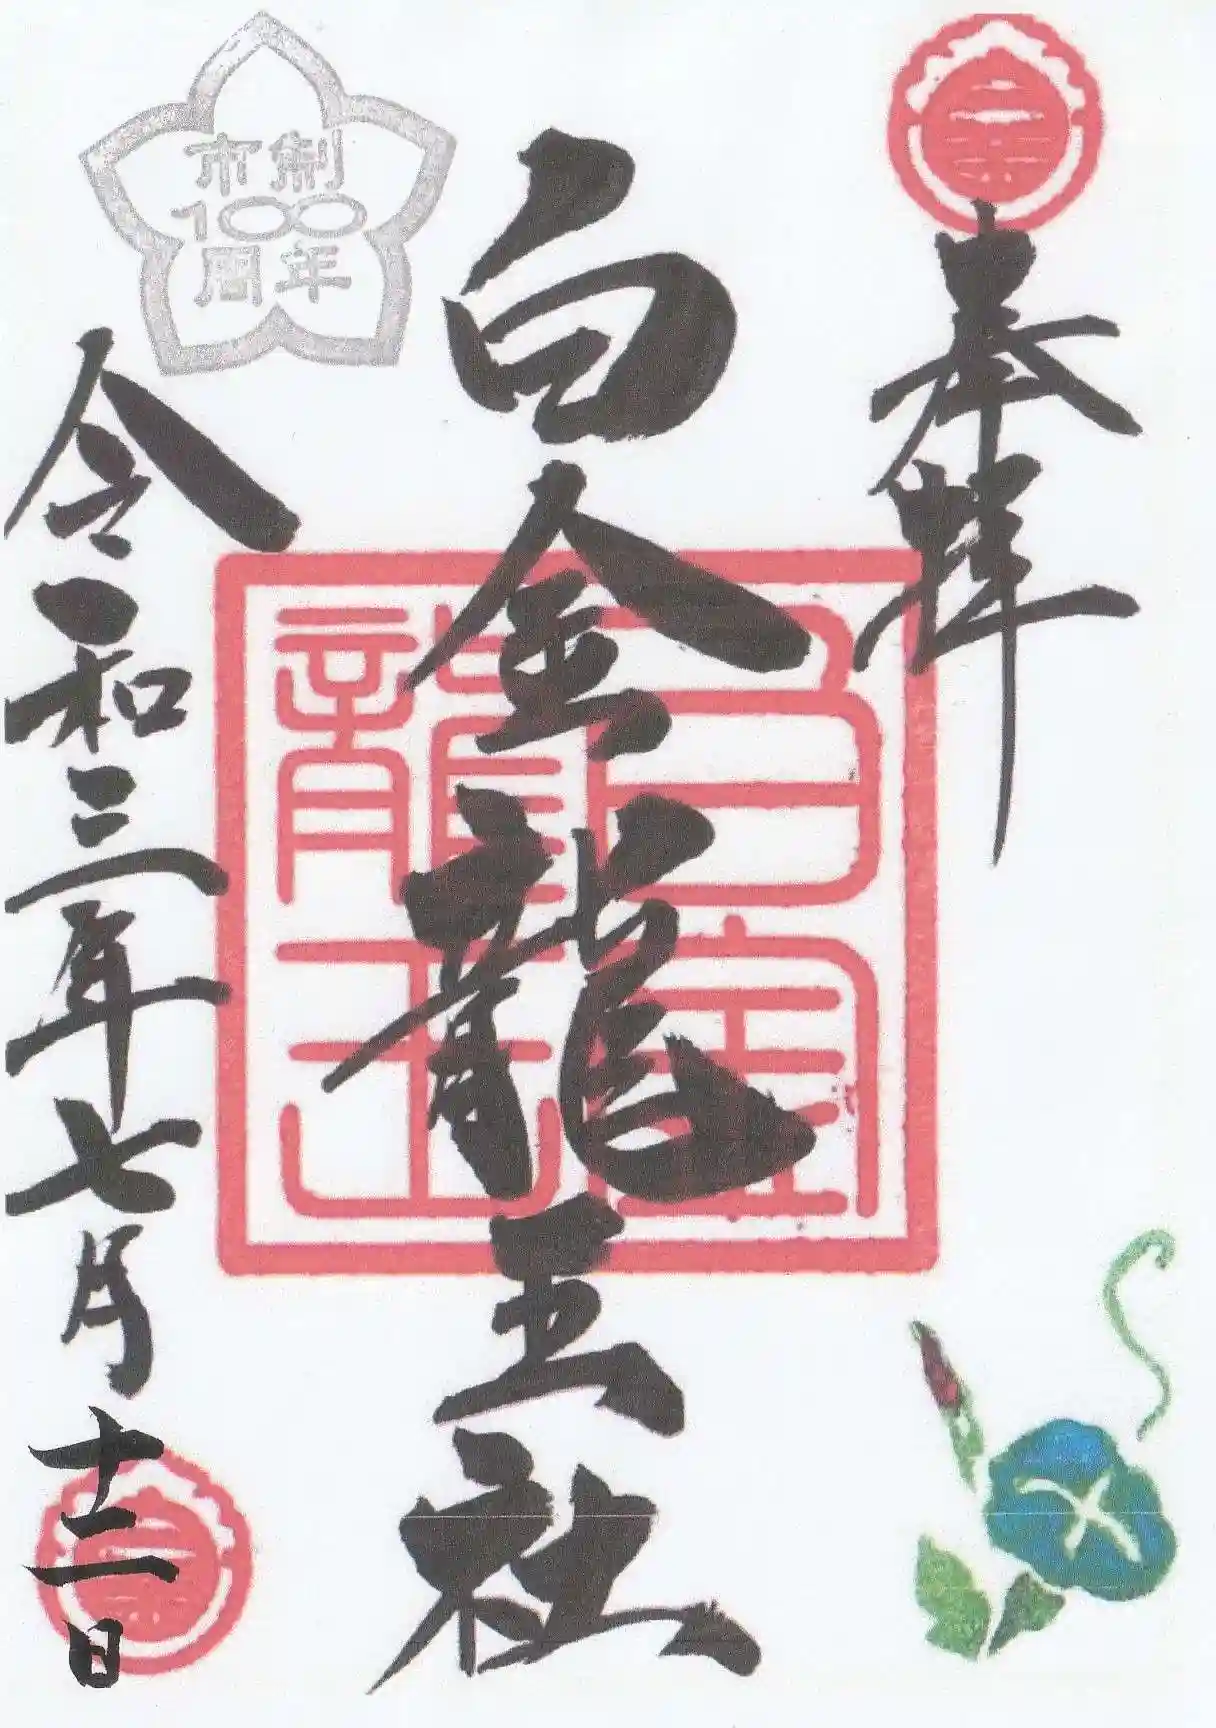 奉拝
白金龍王社
白金
龍王
市制
100
周年
令和三年七月十二日